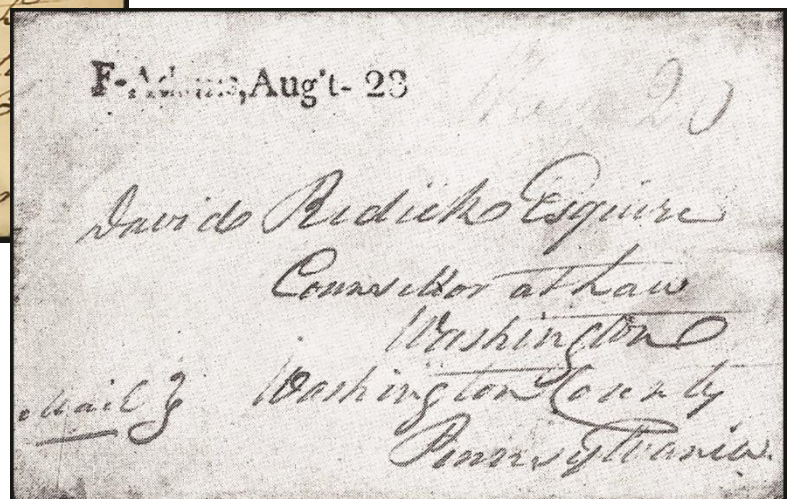 F-Adams, Aug't- 28
20
David Redick Esquire
Counsellor at Law
Washington
Washington County
Mail }
Pennsylvania.